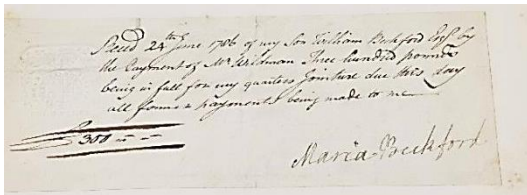 Recd 24th June 1786 of my Son William Beckford Esqr by
the Payment of Mr Wildman Three hundred pounds
being in full for my quarters Jointure due this day
all former payments being made to me
£300 " — " —
Maria Beckford